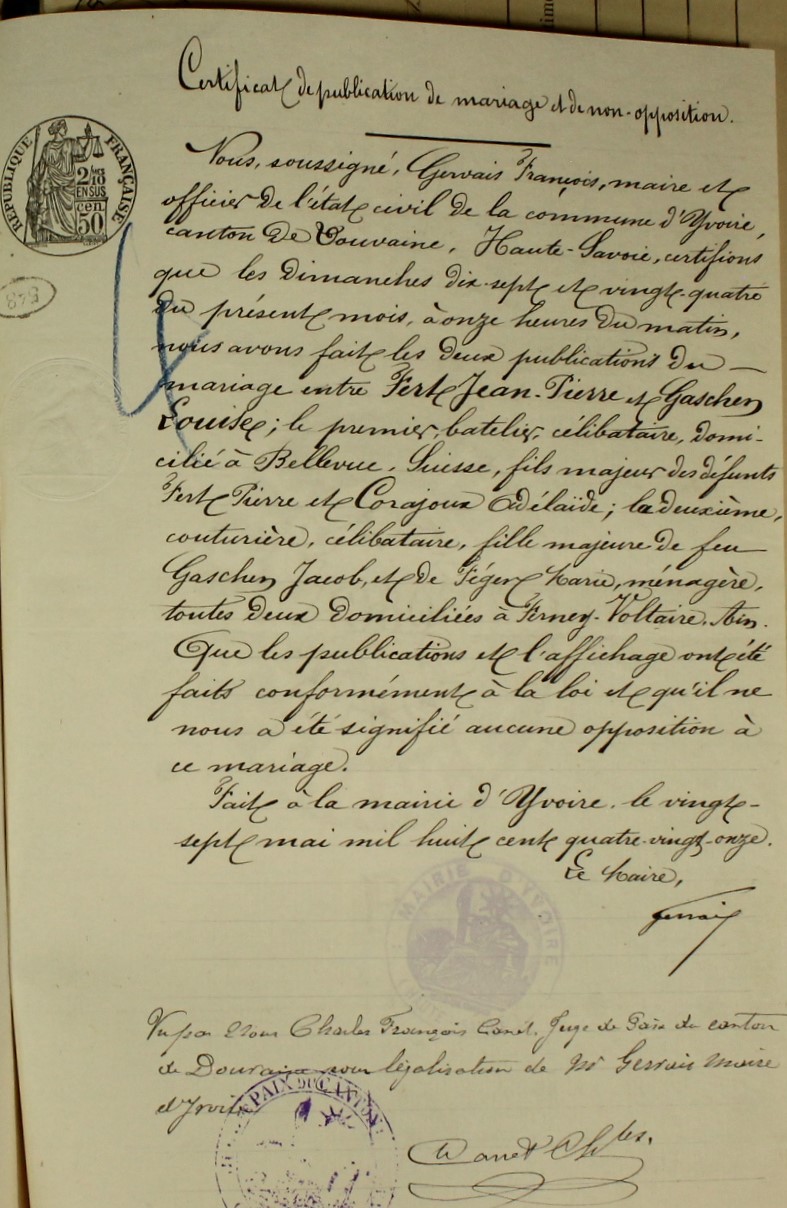 Certificat de publication de mariage et de non-opposition.
RÉPUBLIQUE FRANÇAISE
2/10
EN SUS
50 cen
Nous, soussigné, Gervais François, maire et
officier de l'état civil de la commune d'Yvoire,
canton de Douvaine, Haute-Savoie, certifions
que les Dimanches dix-sept et vingt-quatre
du présent mois, à onze heures du matin,
nous avons fait les deux publications du
mariage entre Fert Jean-Pierre et Gaschen
Louise; le premier, batelier, célibataire, domi-
cilié à Bellevue, Suisse, fils majeur des défunts
Fert Pierre et Corajoux Adélaïde; la deuxième,
couturière, célibataire, fille majeure de feu
Gaschen Jacob, et de Féger Marie, ménagère,
toutes deux domiciliées à Ferney-Voltaire, Ain.
Que les publications et l'affichage ont été
faits conformément à la loi et qu'il ne
nous a été signifié aucune opposition à
ce mariage.
Fait à la mairie d'Yvoire, le vingt-
sept mai mil huit cent quatre-vingt-onze.
Le Maire,
Gervais
MAIRIE D'YVOIRE
Vu par Nous Charles François Canet, Juge de Paix du canton
de Douvaine pour légalisation de Mr Gervais Maire
d'Yvoire
PAIX DU CANTON
Canet Chles.